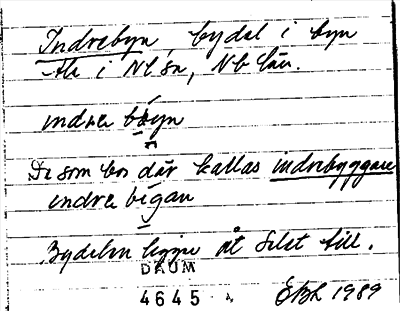 Indrebyn, bydel i byn
i Nl sn, Nb län.
indre býn
De som bor där kallas indrebyggare
indre bigan
Bydelen ligger åt öst till.
DAUM
4645 ÖBL 1989